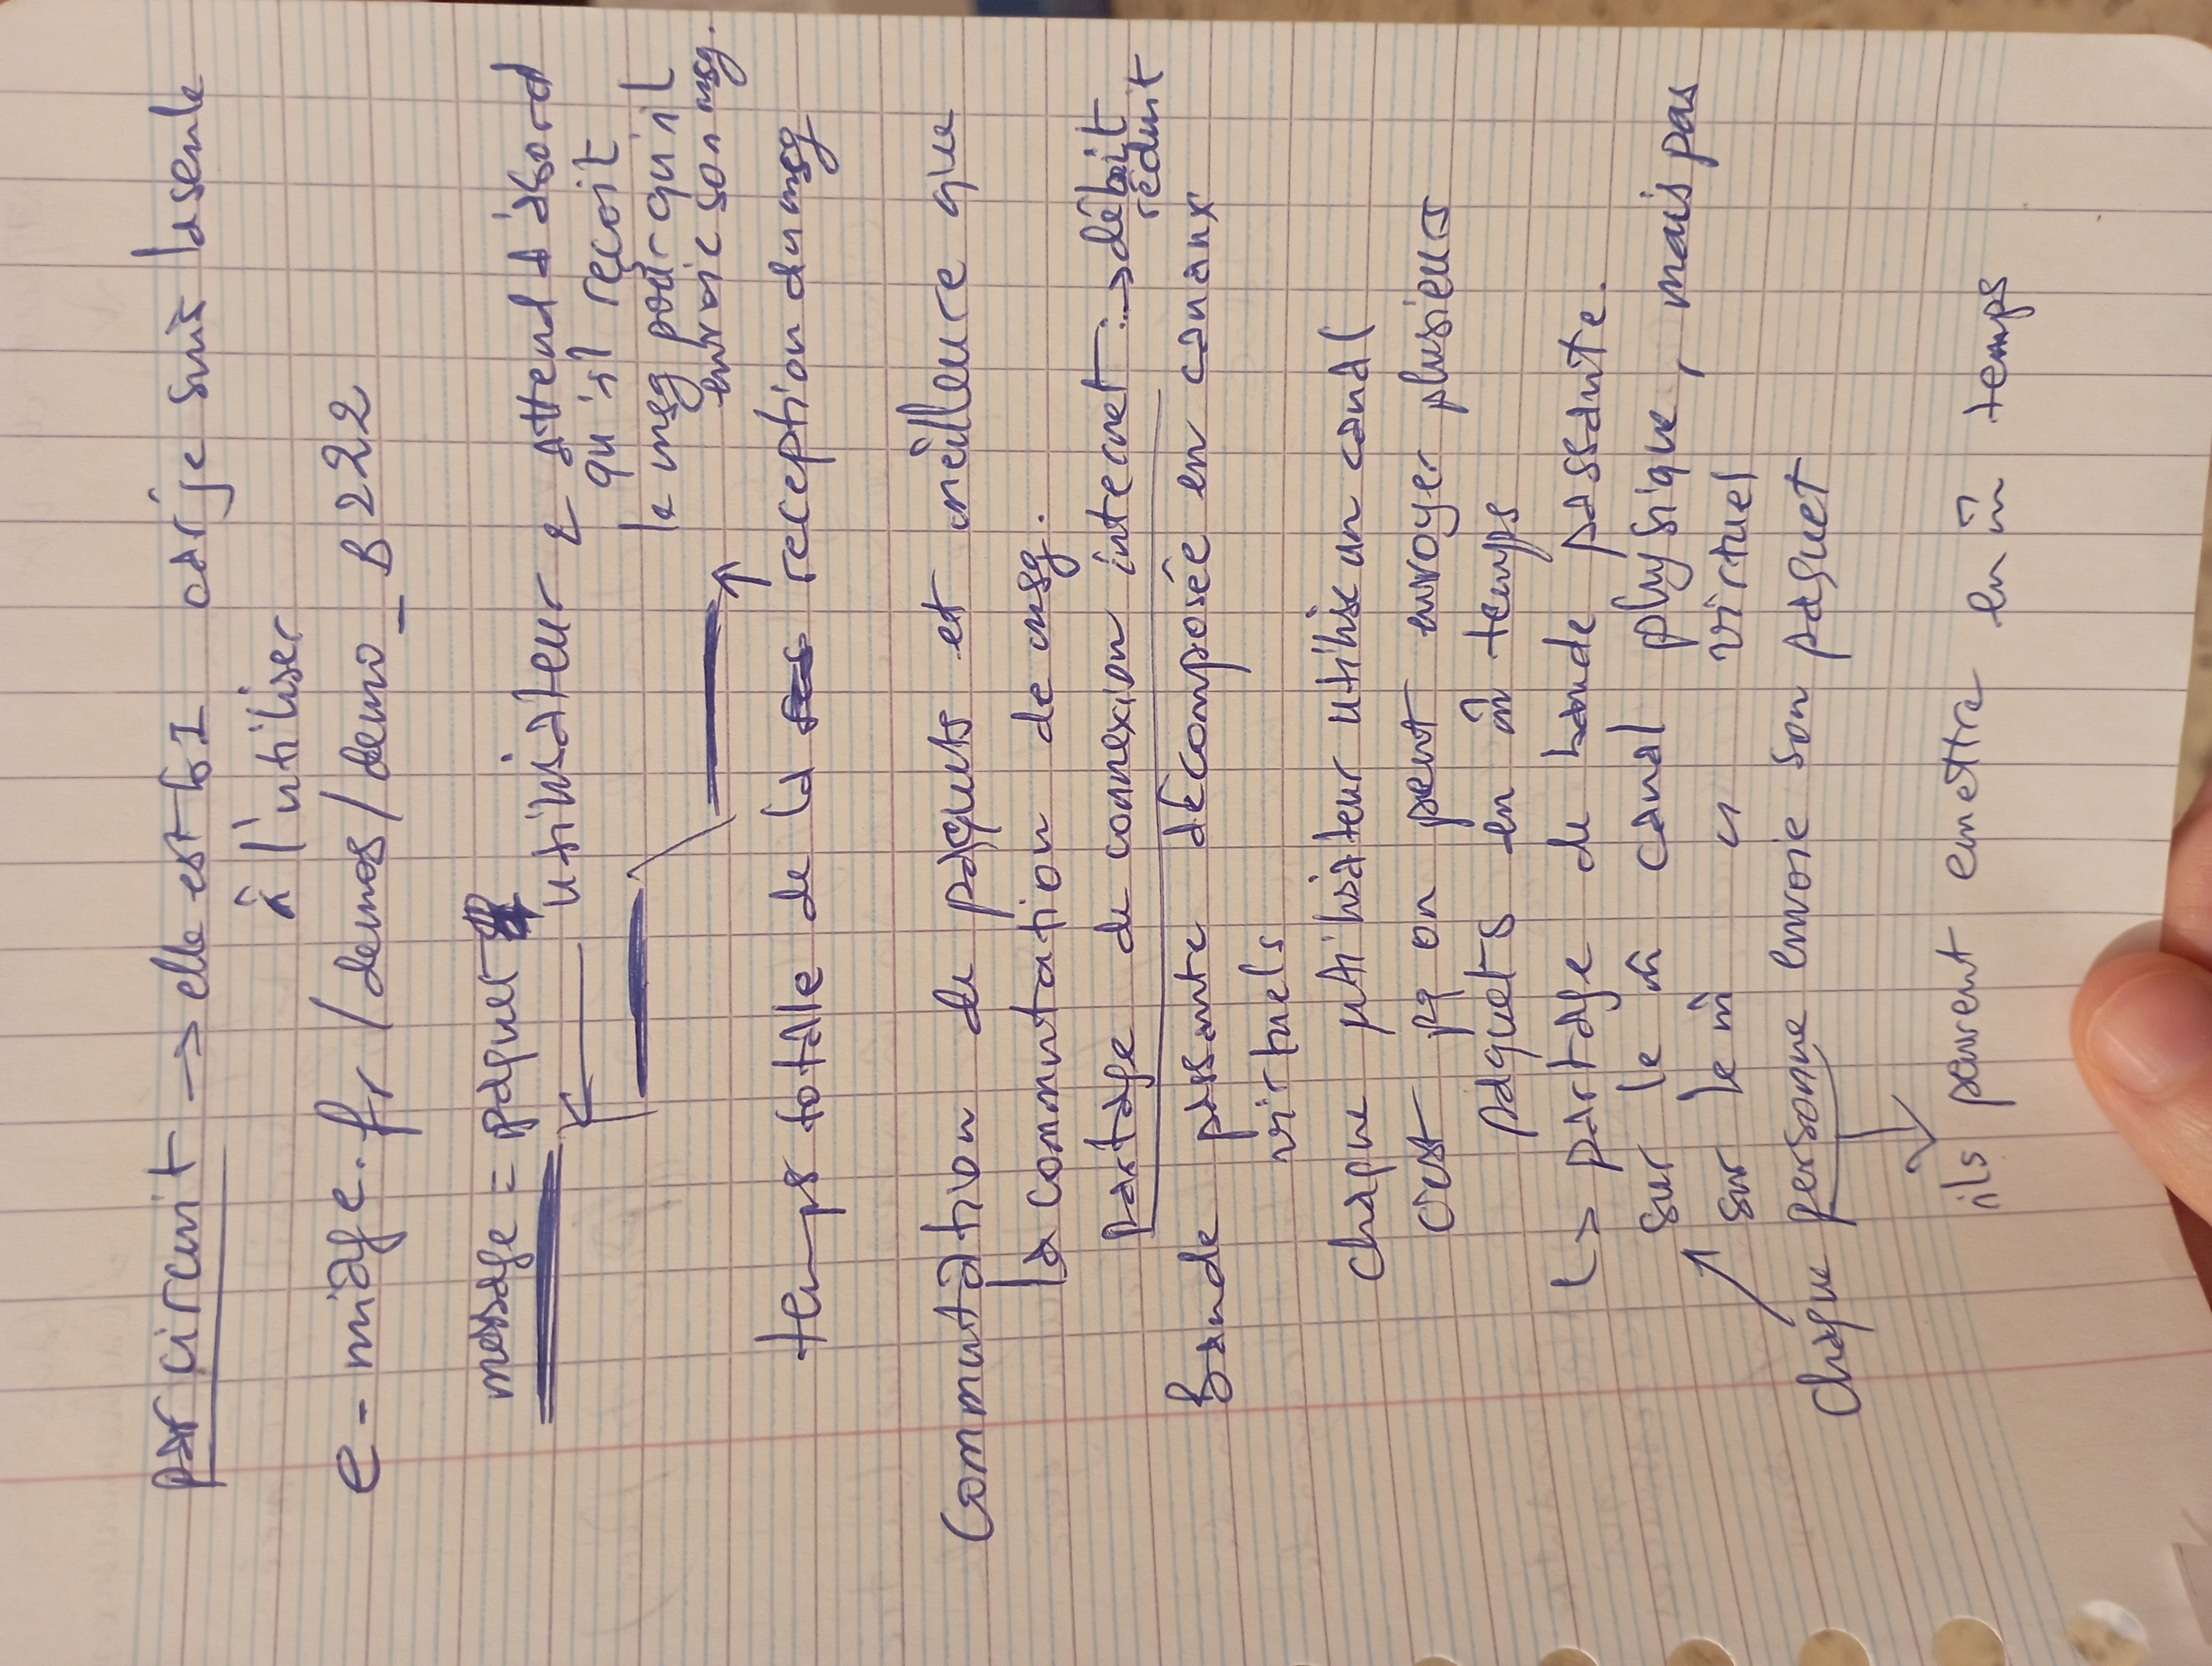 par circuit → elle est car je suis la seule
à l'utiliser
e-miage.fr/demos/demo_B222
message = paquet
utilisateur 2 attend d'abord
qu'il reçoit
le msg pour qu'il
envoie son msg.
temps totale de la reception du msg
Commutation de paquets et meilleure que
la commutation de msg.
partage de connexion internet : → débit
réduit
Bande passante décomposée en canaux
virtuels
chaque utilisateur utilise un canal
c'est pq on peut envoyer plusieurs
paquets en m̂ temps
↳ partage de bande passante.
sur le m̂ canal physique, mais pas
sur le m̂ " virtuel
chaque personne envoie son paquet
ils peuvent emettre en m̂ temps